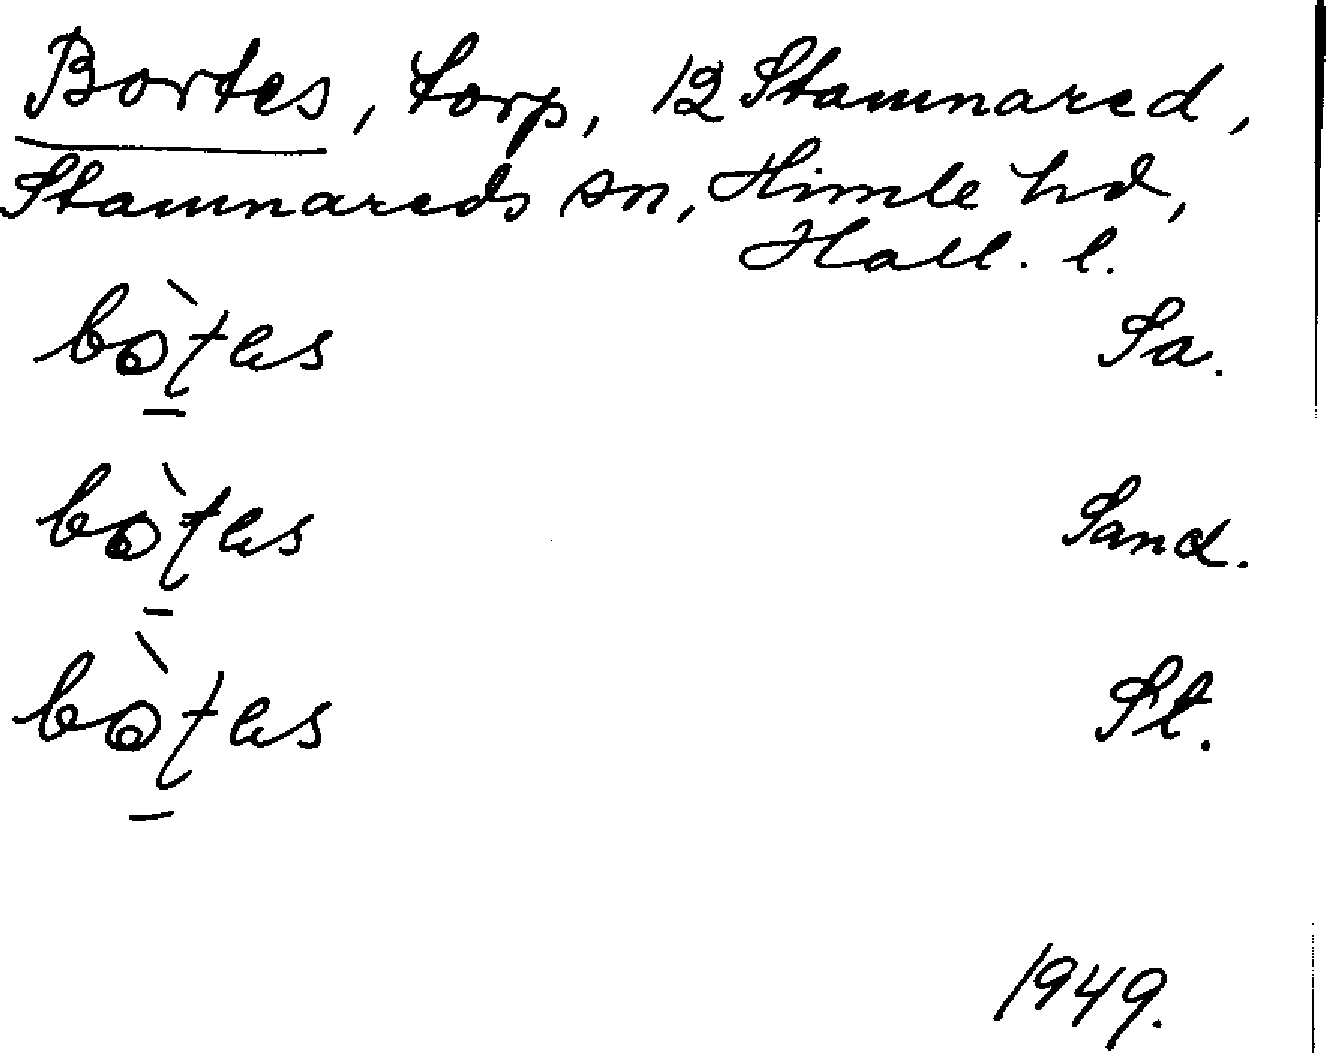 Bortes, torp, 12 Stamnared,
Stamnareds sn, Himle hd,
Hall. l.
bò̱ʈes Sa.
bò̱ʈes Sand.
bò̱ʈes St.
1949.